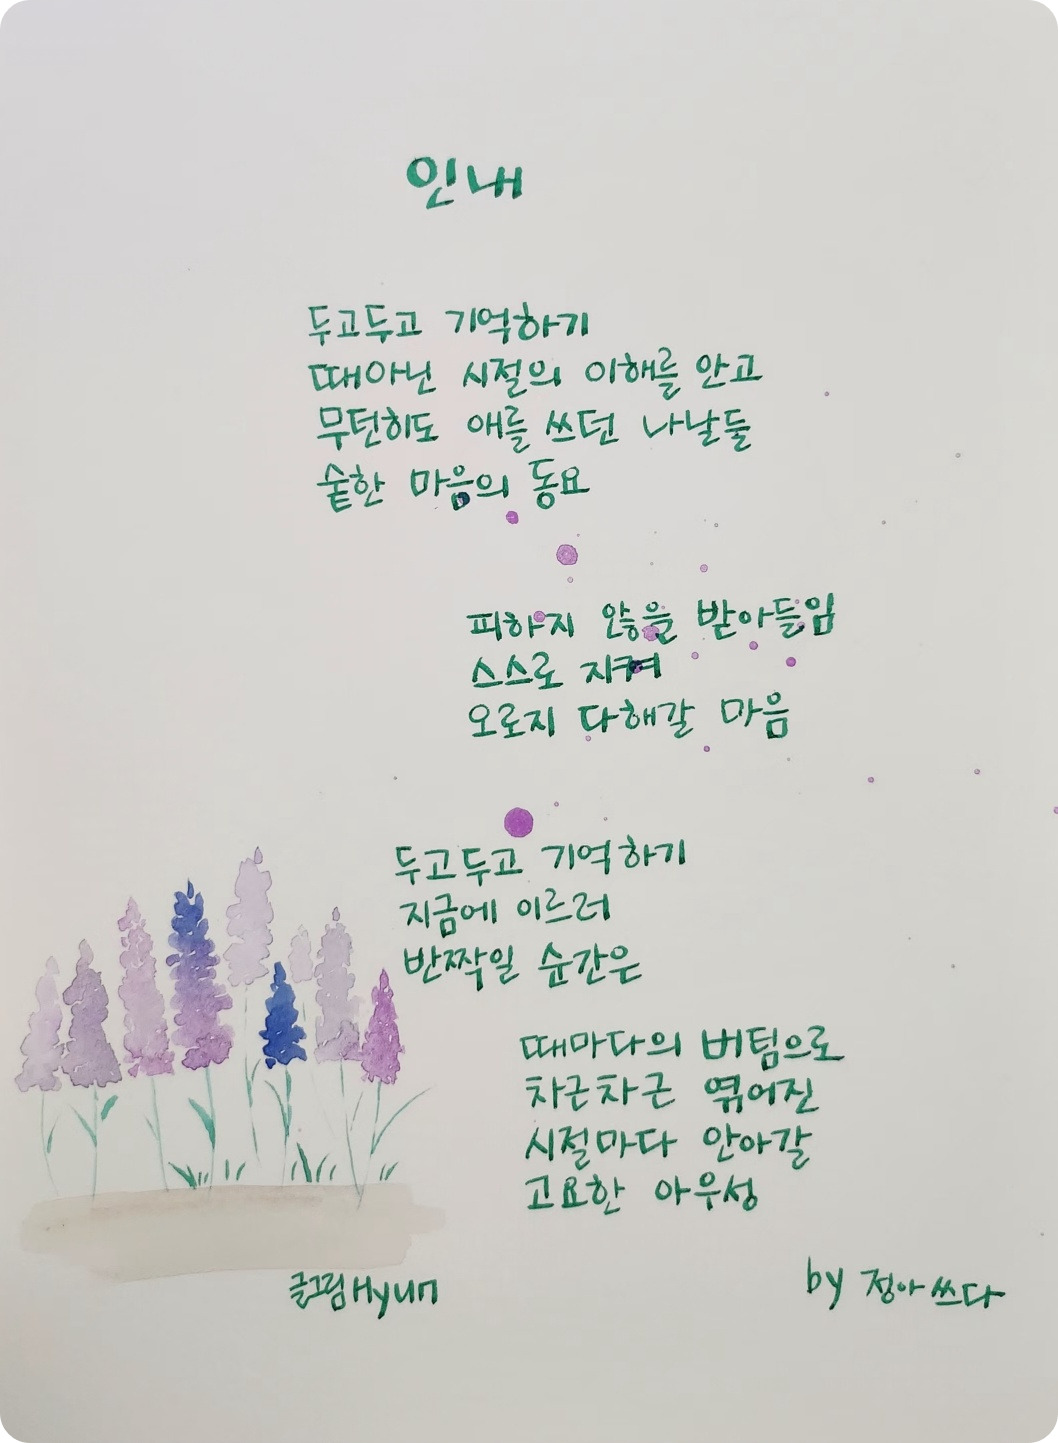 인내
두고두고 기억하기
때아닌 시절의 이해를 안고
무던히도 애를 쓰던 나날들
숱한 마음의 동요
피하지 않을 받아들임
스스로 지켜
오로지 다해갈 마음
두고두고 기억하기
지금에 이르러
반짝일 순간은
때마다의 버팀으로
차근차근 엮어진
시절마다 안아갈
고요한 아우성
글그림Hyun
by 정아쓰다